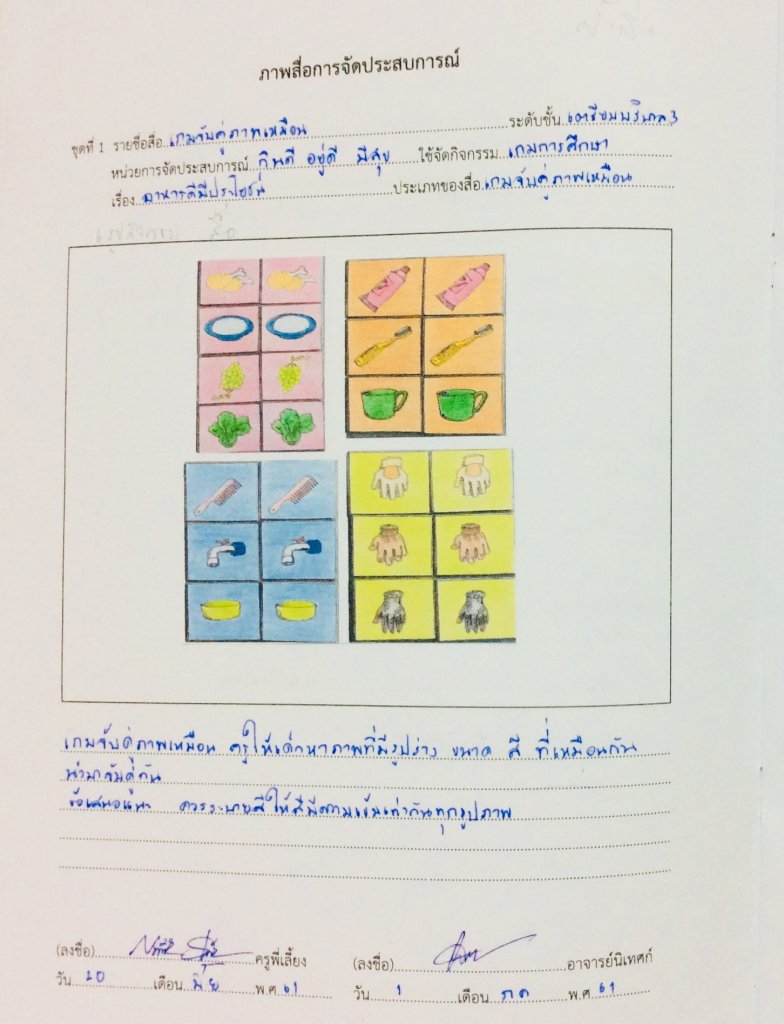 ภาพสื่อการจัดประสบการณ์
ชุดที่ 1 รายชื่อสื่อ เกมจับคู่ภาพเหมือน ระดับชั้น เตรียมบริบาล 3
หน่วยการจัดประสบการณ์ กินดี อยู่ดี มีสุข ใช้จัดกิจกรรม เกมการศึกษา
เรื่อง อาหารดีมีประโยชน์ ประเภทของสื่อ เกมจับคู่ภาพเหมือน
เกมจับคู่ภาพเหมือน ครูให้เด็กหาภาพที่มีรูปร่าง ขนาด สี ที่เหมือนกัน
นำมาจับคู่กัน
ข้อเสนอแนะ ควรระบายสีให้สีมีความเข้มเท่ากันทุกรูปภาพ
(ลงชื่อ) ครูพี่เลี้ยง (ลงชื่อ) อาจารย์นิเทศก์
วัน 20 เดือน มิย พ.ศ 61 วัน 1 เดือน กค พ.ศ 61